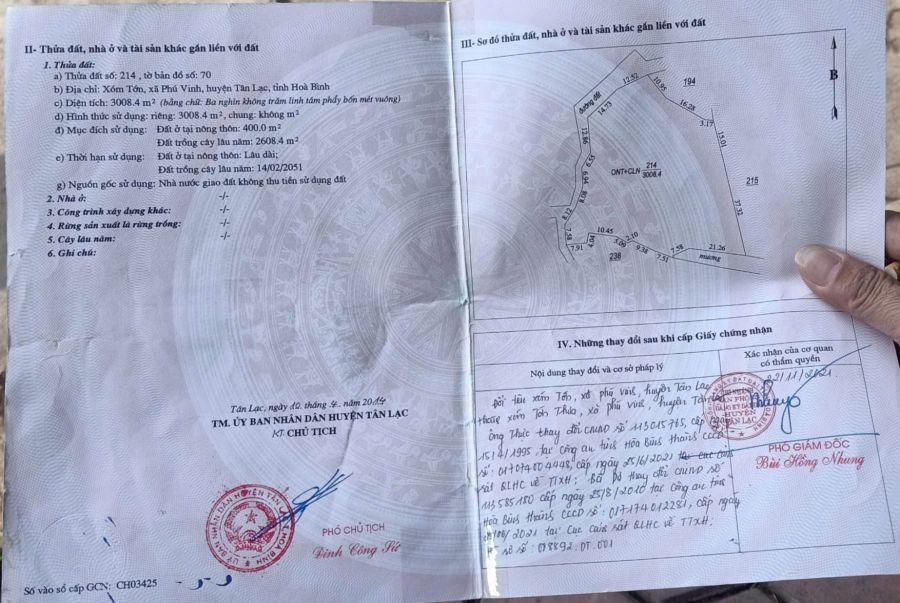 II- Thửa đất, nhà ở và tài sản khác gắn liền với đất
1. Thửa đất:
a) Thửa đất số: 214 , tờ bản đồ số: 70
b) Địa chỉ: Xóm Tớn, xã Phú Vinh, huyện Tân Lạc, tỉnh Hoà Bình
c) Diện tích: 3008.4 m² (bằng chữ: Ba nghìn không trăm linh tám phẩy bốn mét vuông)
d) Hình thức sử dụng: riêng: 3008.4 m², chung: không m²
đ) Mục đích sử dụng: Đất ở tại nông thôn: 400.0 m²
Đất trồng cây lâu năm: 2608.4 m²
e) Thời hạn sử dụng: Đất ở tại nông thôn: Lâu dài;
Đất trồng cây lâu năm: 14/02/2051
g) Nguồn gốc sử dụng: Nhà nước giao đất không thu tiền sử dụng đất
2. Nhà ở: -/-
3. Công trình xây dựng khác: -/-
4. Rừng sản xuất là rừng trồng: -/-
5. Cây lâu năm: -/-
6. Ghi chú:
Tân Lạc, ngày 10 tháng 4 năm 2014
TM. ỦY BAN NHÂN DÂN HUYỆN TÂN LẠC
KT CHỦ TỊCH
PHÓ CHỦ TỊCH
Đinh Công Sứ
Số vào sổ cấp GCN: CH03425
III- Sơ đồ thửa đất, nhà ở và tài sản khác gắn liền với đất
B
194
12.52
10.95
đường đất
14.73
16.28
3.17
12.86
15.01
6.55
ONT+CLN 214
3008.4
215
6.94
8.08
8.12
37.32
7.58
10.45
2.10
7.91
4.04
5.09
9.38
7.51
7.58
21.26
mương
238
IV. Những thay đổi sau khi cấp Giấy chứng nhận
Nội dung thay đổi và cơ sở pháp lý
Xác nhận của cơ quan
có thẩm quyền
22/11/2021
Đổi tên xóm Tớn, xã Phú Vinh, huyện Tân Lạc
thành xóm Tớn Thửa, xã Phú Vinh, huyện Tân Lạc
ông Thức thay đổi CMND số 113015765, cấp ngày
15/4/1995 tại Công an tỉnh Hòa Bình thành CCCD
số: 017074004448, cấp ngày 25/6/2021 tại Cục Cảnh
sát QLHC về TTXH; Bà thay đổi CMND số
113585180 cấp ngày 25/8/2010 tại Công an tỉnh
Hòa Bình thành CCCD số: 017174012281, cấp ngày
/2021 tại Cục Cảnh sát QLHC về TTXH.
số: 018892.DT.001
PHÓ GIÁM ĐỐC
Bùi Hồng Nhung